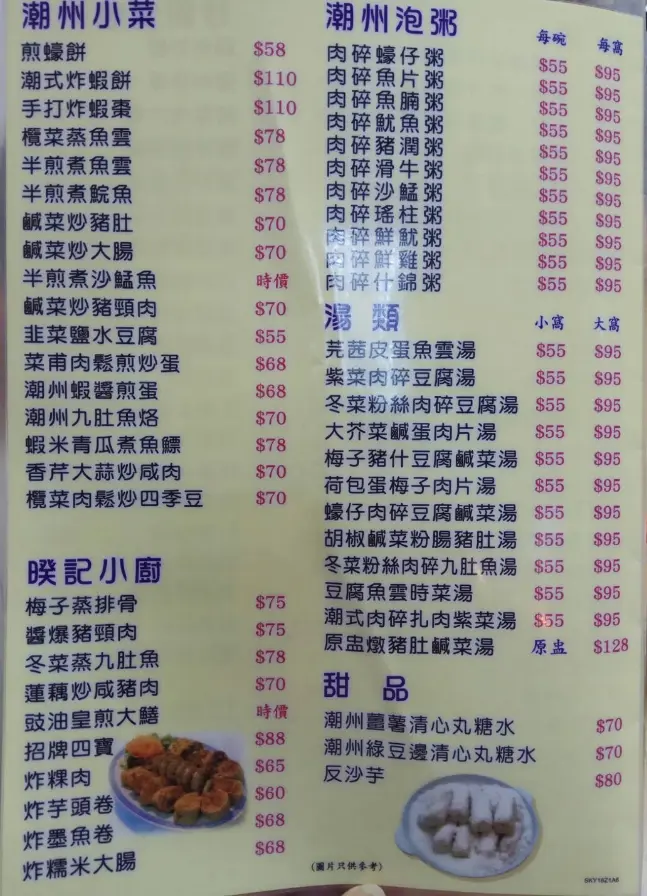 潮州小菜
煎蠔餅 $58
潮式炸蝦餅 $110
手打炸蝦棗 $110
欖菜蒸魚雲 $78
半煎煮魚雲 $78
半煎煮鯇魚 $78
鹹菜炒豬肚 $70
鹹菜炒大腸 $70
半煎煮沙鯭魚 時價
鹹菜炒豬頸肉 $70
韭菜鹽水豆腐 $55
菜甫肉鬆煎炒蛋 $68
潮州蝦醬煎蛋 $68
潮州九肚魚烙 $70
蝦米青瓜煮魚鰾 $78
香芹大蒜炒咸肉 $70
欖菜肉鬆炒四季豆 $70
暌記小廚
梅子蒸排骨 $75
醬爆豬頸肉 $75
冬菜蒸九肚魚 $78
蓮藕炒咸豬肉 $70
豉油皇煎大鱔 時價
招牌四寶 $88
炸粿肉 $65
炸芋頭卷 $60
炸墨魚卷 $68
炸糯米大腸 $68
潮州泡粥 每碗 每窩
肉碎蠔仔粥 $55 $95
肉碎魚片粥 $55 $95
肉碎魚腩粥 $55 $95
肉碎魷魚粥 $55 $95
肉碎豬潤粥 $55 $95
肉碎滑牛粥 $55 $95
肉碎沙鯭粥 $55 $95
肉碎瑤柱粥 $55 $95
肉碎鮮魷粥 $55 $95
肉碎鮮雞粥 $55 $95
肉碎什錦粥 $55 $95
湯 類 小窩 大窩
芫茜皮蛋魚雲湯 $55 $95
紫菜肉碎豆腐湯 $55 $95
冬菜粉絲肉碎豆腐湯 $55 $95
大芥菜鹹蛋肉片湯 $55 $95
梅子豬什豆腐鹹菜湯 $55 $95
荷包蛋梅子肉片湯 $55 $95
蠔仔肉碎豆腐鹹菜湯 $55 $95
胡椒鹹菜粉腸豬肚湯 $55 $95
冬菜粉絲肉碎九肚魚湯 $55 $95
豆腐魚雲時菜湯 $55 $95
潮式肉碎扎肉紫菜湯 $55 $95
原盅燉豬肚鹹菜湯 原盅 $128
甜 品
潮州薑薯清心丸糖水 $70
潮州綠豆邊清心丸糖水 $70
反沙芋 $80
(圖片只供參考)
SKY1621A6